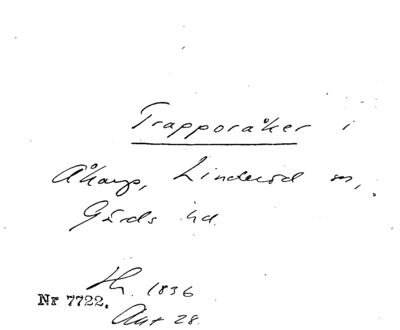 Trapporåker i
Åkarp, Linderöd sn,
Gärds hd
Th. 1836
Nr 7722.
Ant 28.